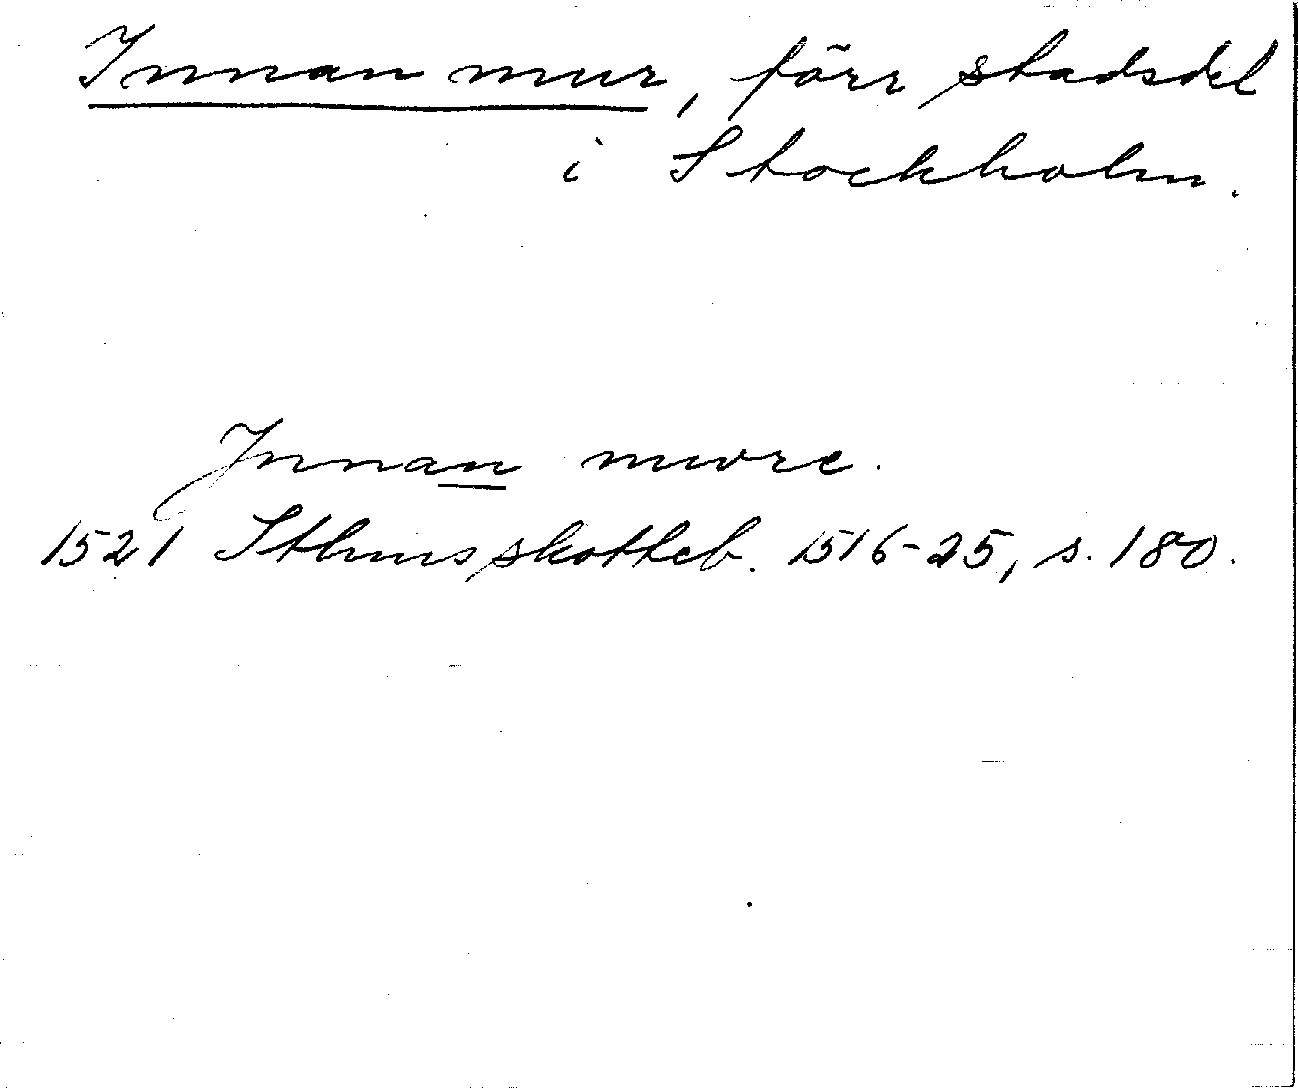 Innan mur, förr stadsdel
i Stockholm.
Jnnan mwre.
1521 Sthms skotteb. 1516-25, s. 180.